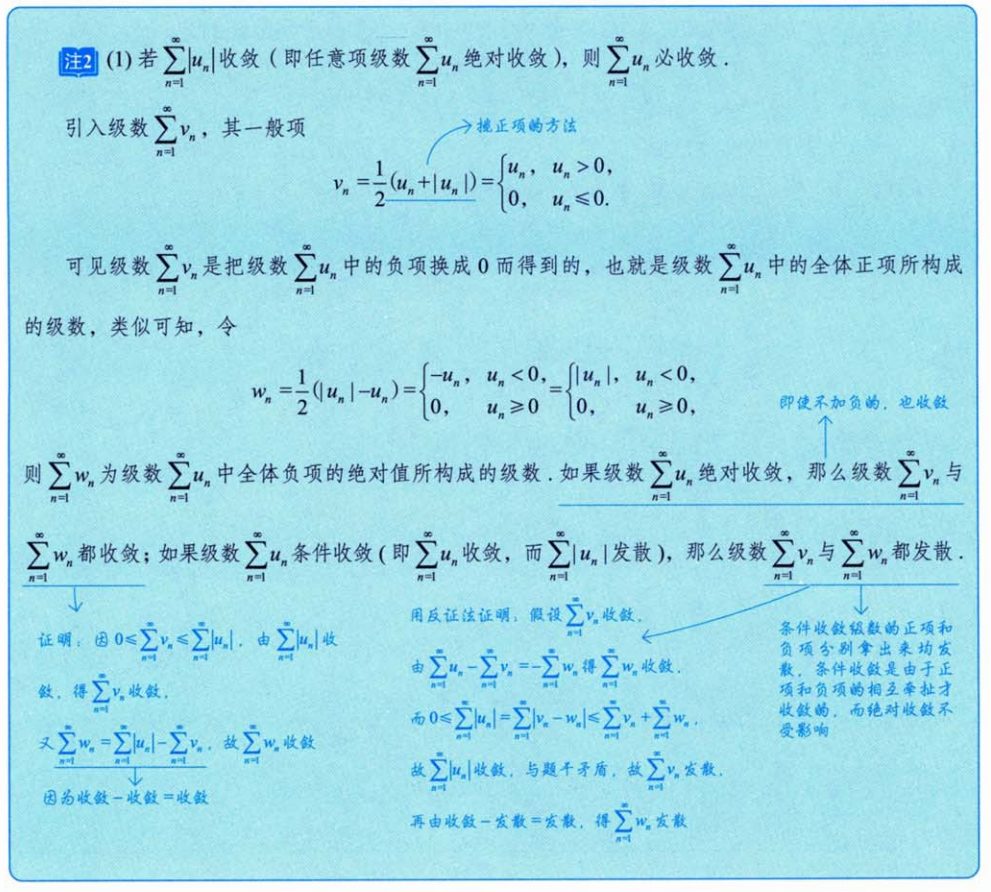 注2 (1) 若 $\sum_{n=1}^{\infty}|u_n|$ 收敛 ( 即任意项级数 $\sum_{n=1}^{\infty}u_n$ 绝对收敛 ), 则 $\sum_{n=1}^{\infty}u_n$ 必收敛 .
引入级数 $\sum_{n=1}^{\infty}v_n$ , 其一般项
挑正项的方法
$v_n=\frac{1}{2}(u_n+|u_n|)=\begin{cases}u_n, & u_n>0,\\0, & u_n\leqslant 0.\end{cases}$
可见级数 $\sum_{n=1}^{\infty}v_n$ 是把级数 $\sum_{n=1}^{\infty}u_n$ 中的负项换成 0 而得到的, 也就是级数 $\sum_{n=1}^{\infty}u_n$ 中的全体正项所构成
的级数, 类似可知, 令
$w_n=\frac{1}{2}(|u_n|-u_n)=\begin{cases}-u_n, & u_n<0,\\0, & u_n\geqslant 0\end{cases}=\begin{cases}|u_n|, & u_n<0,\\0, & u_n\geqslant 0,\end{cases}$
即使不加负的, 也收敛
则 $\sum_{n=1}^{\infty}w_n$ 为级数 $\sum_{n=1}^{\infty}u_n$ 中全体负项的绝对值所构成的级数 . 如果级数 $\sum_{n=1}^{\infty}u_n$ 绝对收敛, 那么级数 $\sum_{n=1}^{\infty}v_n$ 与
$\sum_{n=1}^{\infty}w_n$ 都收敛; 如果级数 $\sum_{n=1}^{\infty}u_n$ 条件收敛 ( 即 $\sum_{n=1}^{\infty}u_n$ 收敛, 而 $\sum_{n=1}^{\infty}|u_n|$ 发散 ), 那么级数 $\sum_{n=1}^{\infty}v_n$ 与 $\sum_{n=1}^{\infty}w_n$ 都发散 .
证明: 因 $0\leqslant\sum_{n=1}^{\infty}v_n\leqslant\sum_{n=1}^{\infty}|u_n|$ , 由 $\sum_{n=1}^{\infty}|u_n|$ 收
敛, 得 $\sum_{n=1}^{\infty}v_n$ 收敛.
又 $\sum_{n=1}^{\infty}w_n=\sum_{n=1}^{\infty}|u_n|-\sum_{n=1}^{\infty}v_n$ , 故 $\sum_{n=1}^{\infty}w_n$ 收敛
因为收敛-收敛=收敛
用反证法证明: 假设 $\sum_{n=1}^{\infty}v_n$ 收敛,
由 $\sum_{n=1}^{\infty}u_n-\sum_{n=1}^{\infty}v_n=-\sum_{n=1}^{\infty}w_n$ 得 $\sum_{n=1}^{\infty}w_n$ 收敛,
而 $0\leqslant\sum_{n=1}^{\infty}|u_n|=\sum_{n=1}^{\infty}|v_n-w_n|\leqslant\sum_{n=1}^{\infty}v_n+\sum_{n=1}^{\infty}w_n$ ,
故 $\sum_{n=1}^{\infty}|u_n|$ 收敛, 与题干矛盾, 故 $\sum_{n=1}^{\infty}v_n$ 发散.
再由收敛-发散=发散, 得 $\sum_{n=1}^{\infty}w_n$ 发散
条件收敛级数的正项和
负项分别拿出来均发
散, 条件收敛是由于正
项和负项的相互牵扯才
收敛的, 而绝对收敛不
受影响